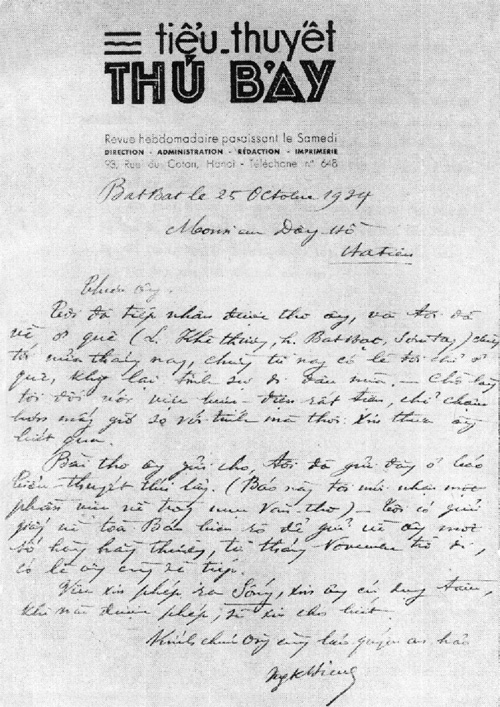 tiểu-thuyết
THỨ BẢY
Revue hebdomadaire paraissant le Samedi
DIRECTION - ADMINISTRATION - RÉDACTION - IMPRIMERIE
93, Rue du Coton, Hanoi - Téléphone n° 648
BatBat le 25 Octobre 1934
Monsieur Đông Hồ
Hatien
Thưa ông,
Tôi đã tiếp nhận được thơ ông, và tôi đã
về ở quê (L. Khê thượng, h. BatBat, Sơntay)
tôi tháng nay, từ nay có lẽ tôi chỉ ở
quê, không tính sự đi đâu nữa. — Chỗ
tôi đối với việc bưu-điện rất tiện, chỉ chậm
hơn mấy giờ so với tỉnh mà thôi xin thưa ông
biết qua.
Bài thơ ông gửi cho, tôi đã gửi đăng ở báo
tiểu thuyết thứ bảy. (Báo này tôi mới nhận một
phần việc về trong mục Văn thơ) — tôi có
về toà Báo để gửi về ông một
số hàng tuần, từ tháng Novembre đi,
có lẽ ông cũng sẽ tiếp.
Việc xin phép ra Sống, xin ông cứ dụng tâm,
khi nào được phép, xin cho biết
Kính chúc ông cùng bảo quyến an hảo
NgkHieu